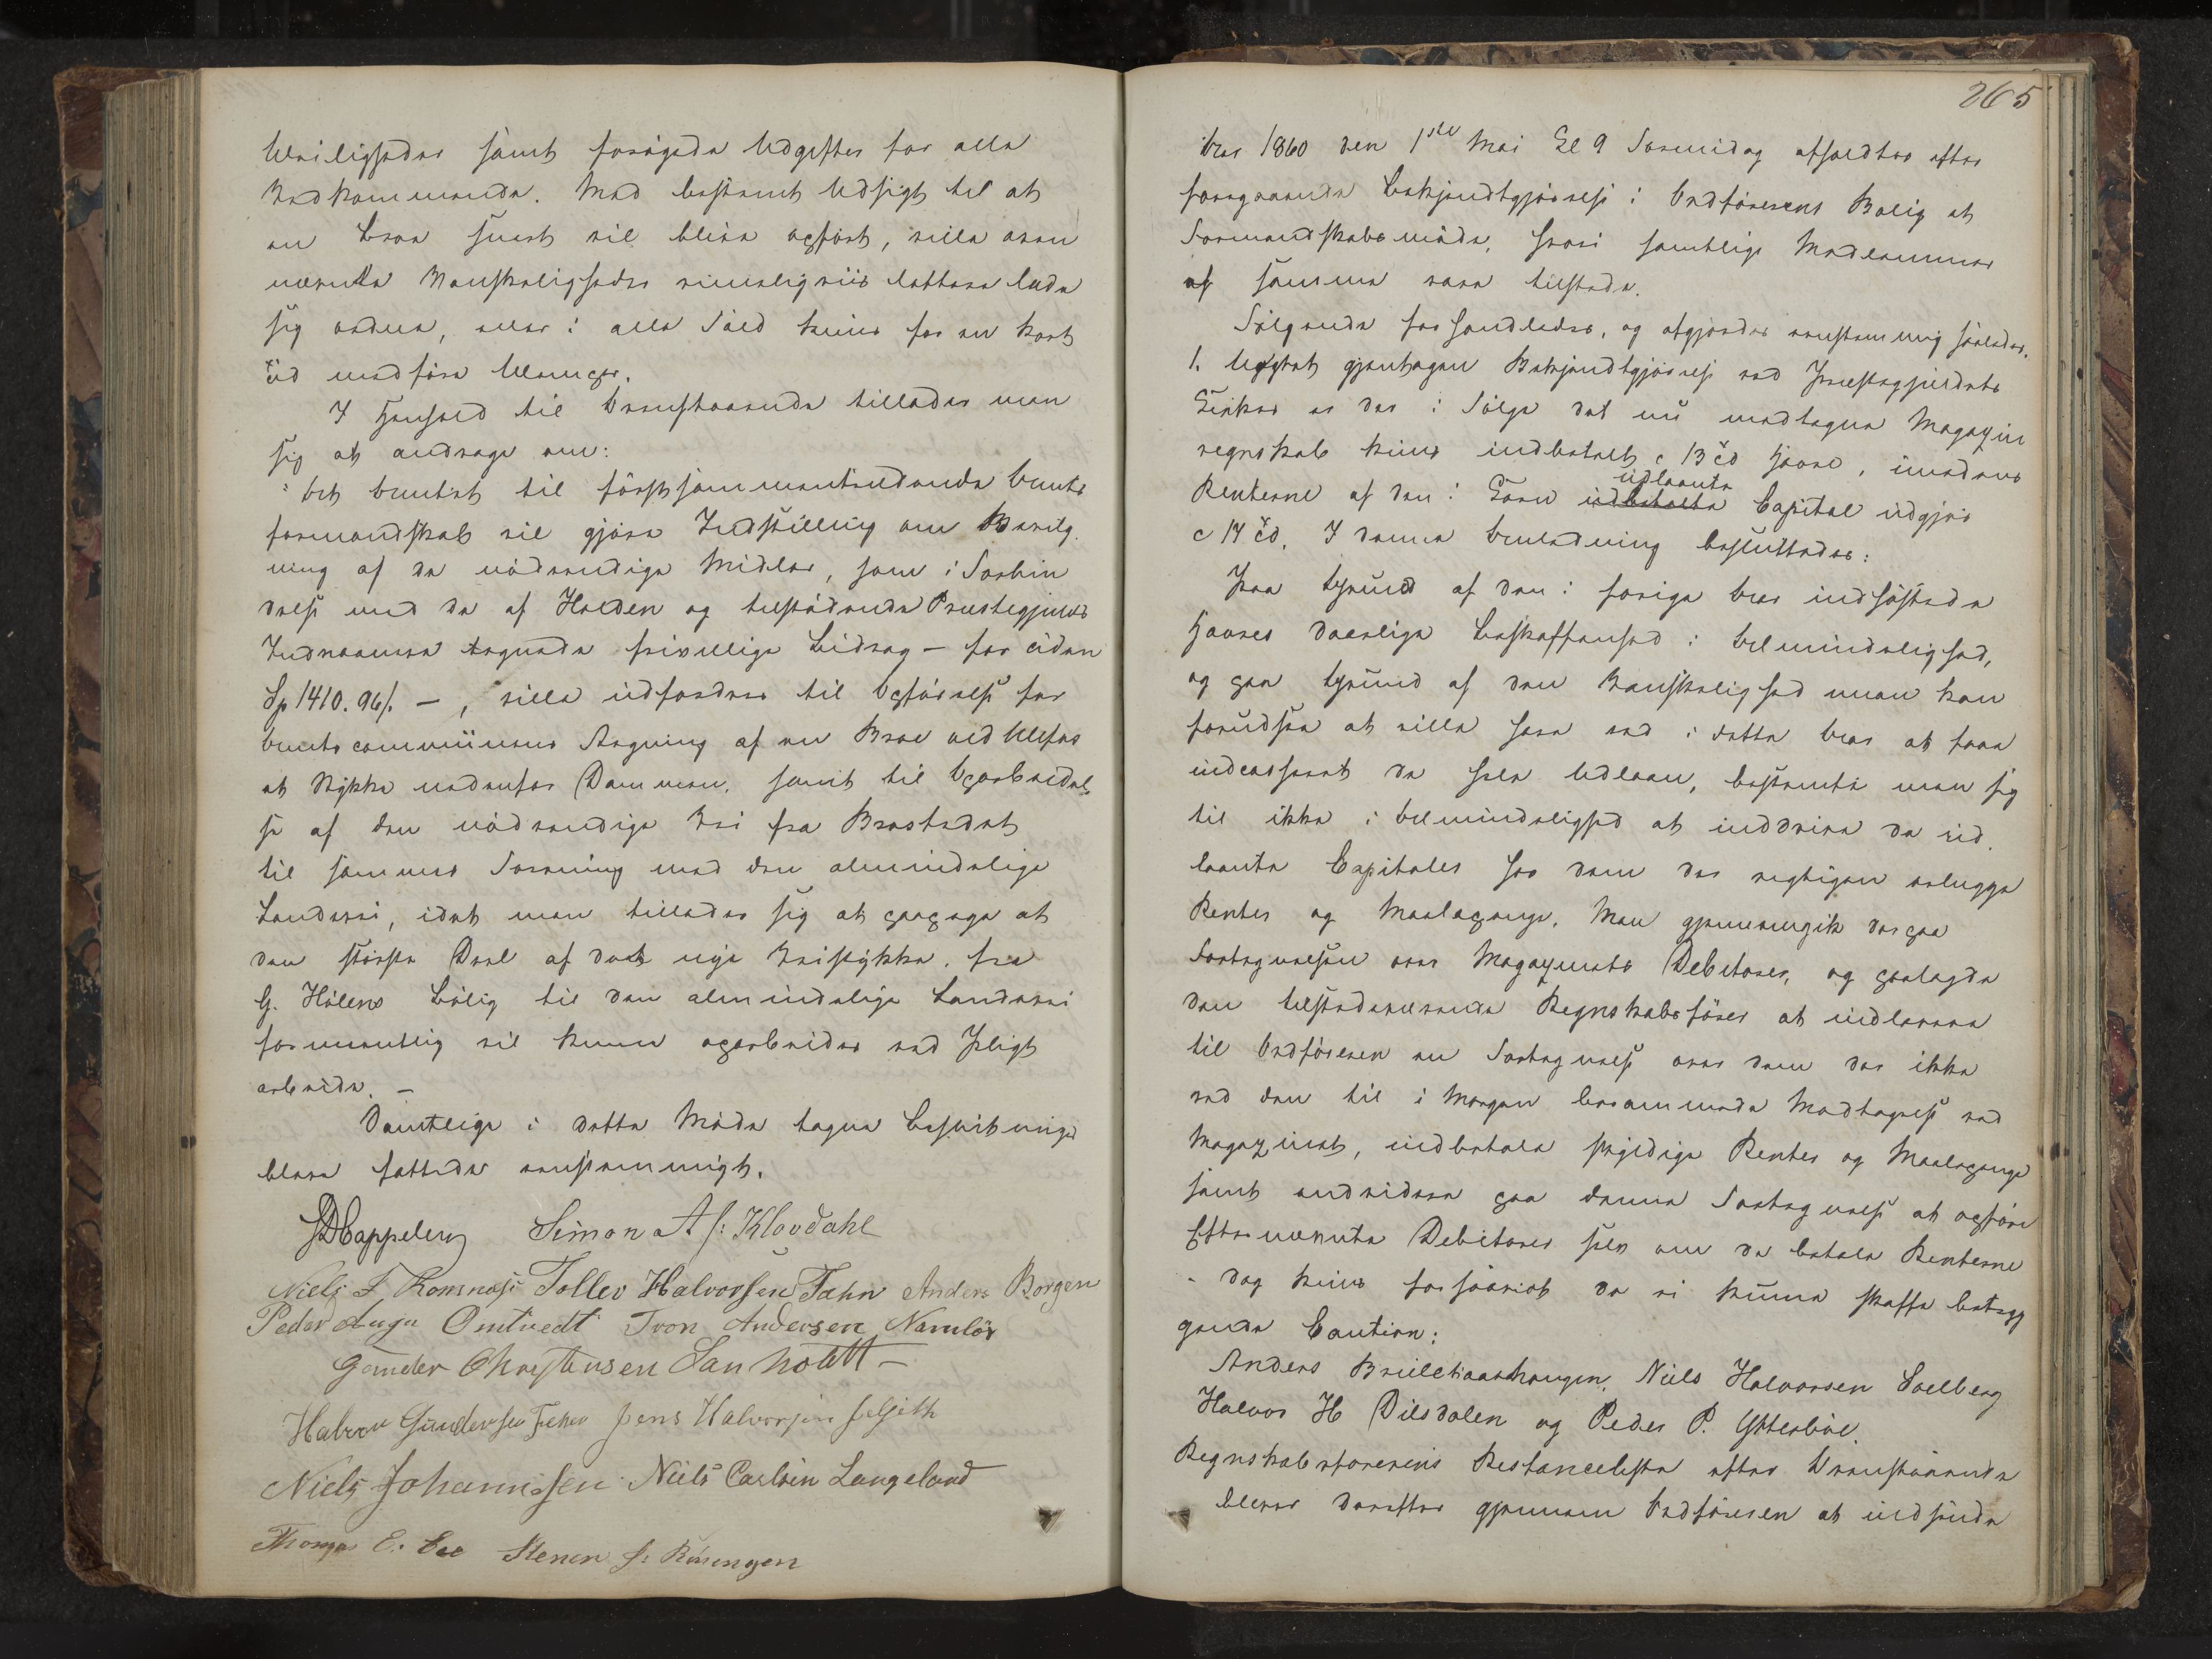 leiligheder samt forøgede Udgifter for alle
Vedkommende. Med bestemt Udsigt til at
en Broe snart vil blive opført, ville oven
nævnte Vanskeligheder rimeligviis lettere lade
sig ordne, eller i alle Fald kuns for en kort
Tid medføre Ulemper.
I Henhold til Ovenstaaende tillader man
sig at andrage om:
at Amtet til førstsammentrædende Amts
formandskab vil gjøre Indstilling om Bevilg-
ning af de nødvendige Midler, som i Forbin
delse med de af Holden og tilstødende Præstegjelds
Indvaanere tegnede frivillige Bidrag – for tiden
Sp 1410. 96 s. –, ville udfordres til Opførelse for
Amtscommunens Regning af en Broe ved Ulefos
et Stykke nedenfor Dammen, samt til Oparbeidel-
se af den nødvendige Vei fra Brostedet
til sammes Forening med den almindelige
Landevei, idet man tillader sig at paapege at
den største Deel af det nye Veistykke, fra
G. Holens Bolig til den almindelige Landevei
formeentlig vil kunne oparbeides ved Pligt
arbeide. –
Samtlige i dette Møde tagne Beslutninger
bleve fattede eenstemmigt.
D Cappelen Simon A s: Klovdahl
Niels F. Romnæs Tollev Halvorssen Fæhn Anders Borgen
Peder Aage Omtvedt Tron Andersen Namløs
Gunder Christensen Sanholtt –
Halvor Gundersen Jens Halvorsen
Niels Johannessen Niels Carlsen Langeland
Thomas E. Lee Stener S: Røsengen
265
Aar 1860 den 1ste Mai Kl 9 Formidag afholdtes efter
foregaaende Bekjendtgjørelse i Ordførerens Bolig et
Formandskabsmøde, hvori samtlige Medlemmer
af samme vare tilstede.
Følgende forhandledes, og afgjordes eenstemmig saaledes.
1. Uagtet gjentagen Bekjendtgjørelse ved Præstegjeldets
Kirker er der i Følge det nu modtagne Magazin
regnskab kuns indbetalt c 13 Td Havre, imedens
Renterne af den i Korn udbetalte udlaante Capital udgjør
c 14 Td. I denne Anledning besluttedes:
Paa Grund af den i forrige Aar indhøstede
Havres daarlige Beskaffenhed i Almindelighed,
og paa Grund af den Vanskelighed man kan
forudsee at ville have ved i dette Aar at faae
indcasseret de hele Udlaan, bestemte man sig
til ikke i Almindelighed at inddrive de ud-
laante Capitaler hos dem der rigtigen erlægge
Renter og Maalepenge. Man gjennemgik derpaa
Fortegnelsen over Magazinets Debitorer, og paalagde
den tilstedeværende Regnskabsfører at indlevere
til Ordføreren en Fortegnelse over dem der ikke
ved den til i Morgen berammede Modtagelse ved
Magazinet, indbetale skyldige Renter og Maalepenge
samt endvidere paa denne Fortegnelse at opføre
Efternævnte Debitorer selv om de betale Renterne
– dog kuns forsaavidt de ei kunne skaffe betryg
gende Caution:
Anders Bræekaashaugen, Niels Halvorsen Solberg
Halvor H Dilsdalen og Peder P. Ytterbøe.
Regnskabsførerens Restanceliste efter Ovenstaaende
bliver derefter gjennem Ordføreren at indsende